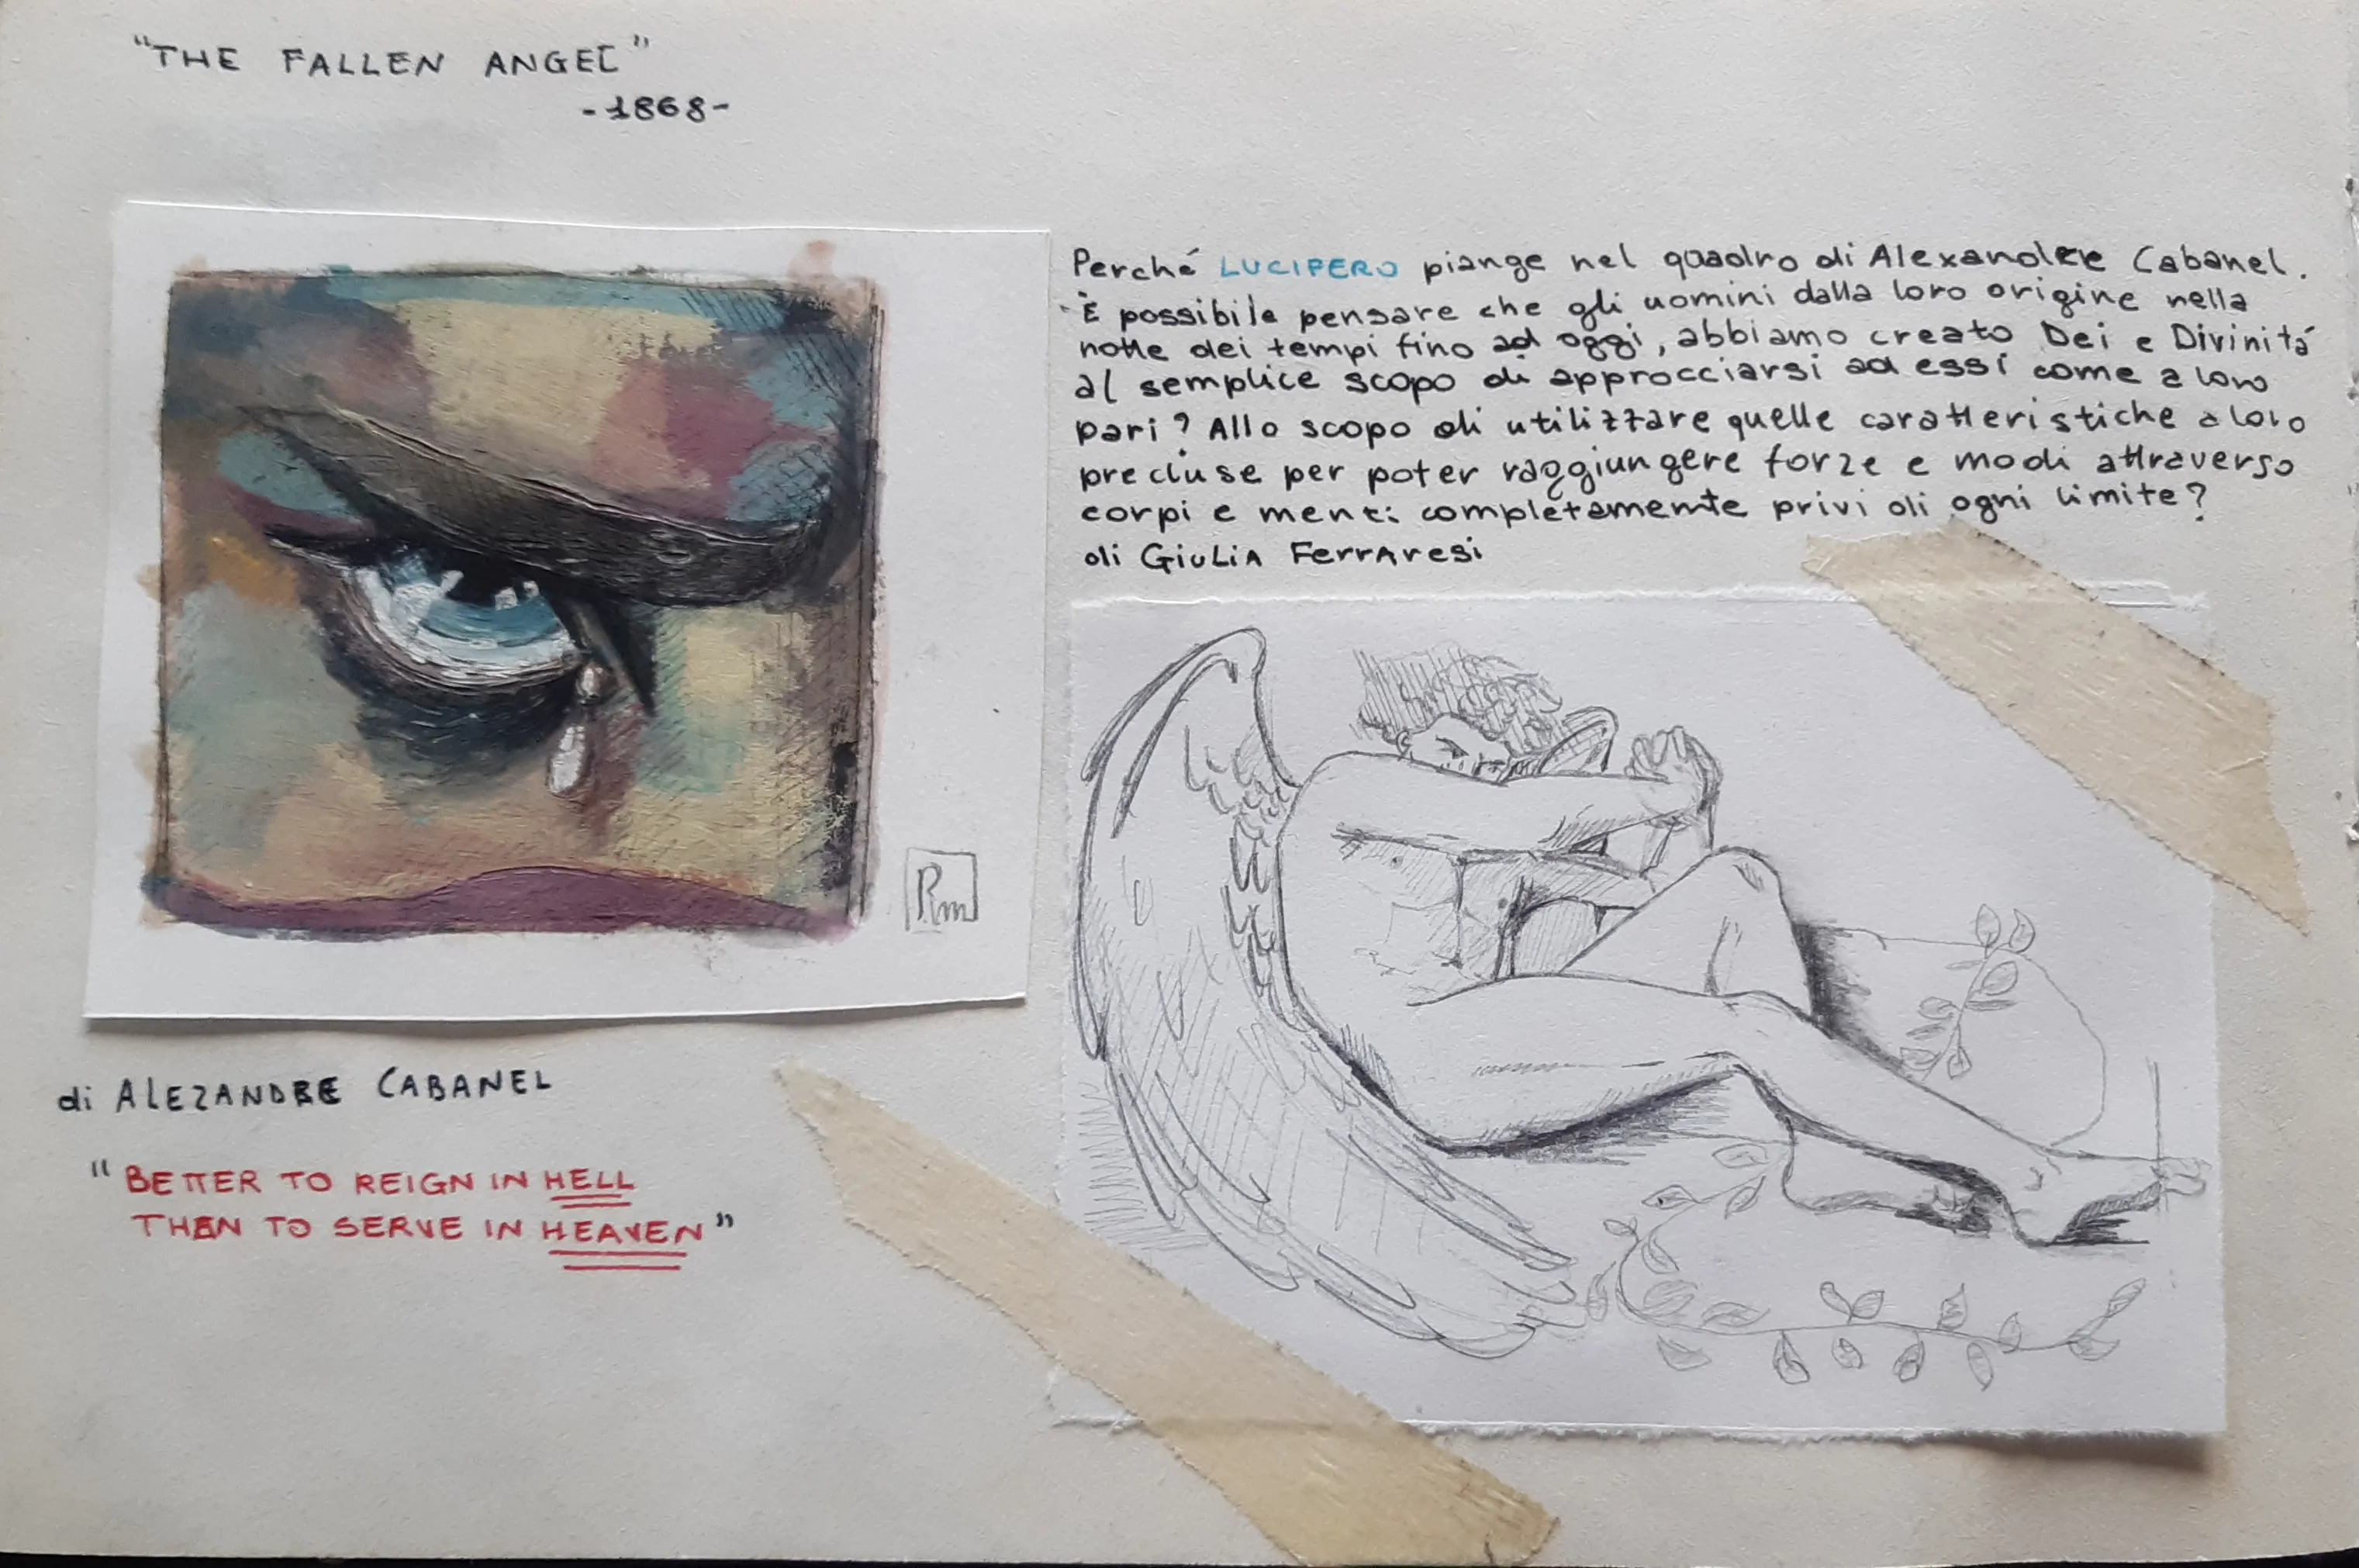 "THE FALLEN ANGEL"
-1868-
Perché LUCIFERO piange nel quadro di Alexandre Cabanel.
È possibile pensare che gli uomini dalla loro origine nella
notte dei tempi fino ad oggi, abbiamo creato Dei e Divinitá
al semplice scopo di approcciarsi ad essi come a loro
pari? Allo scopo di utilizzare quelle caratteristiche a loro
precluse per poter raggiungere forze e modi attraverso
corpi e menti completamemte privi di ogni limite?
di GiuLiA FerrAresi
Rm
di ALEZANDRE CABANEL
"BETTER TO REIGN IN HELL
THAN TO SERVE IN HEAVEN"